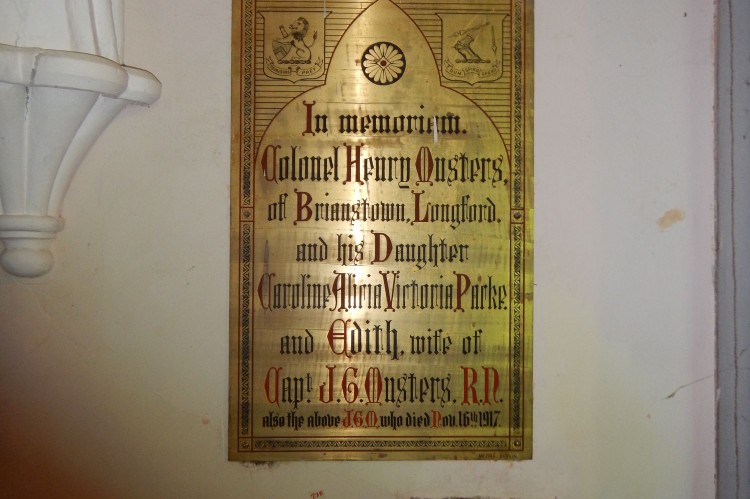 In memoriam.
Colonel Henry Musters,
of Brianstown, Longford.
and his Daughter
Caroline Alicia Victoria Parke.
and Edith, wife of
Capt. J. G. Musters. R.N.
also the above J.G.M. who died Nov. 16th 1917.